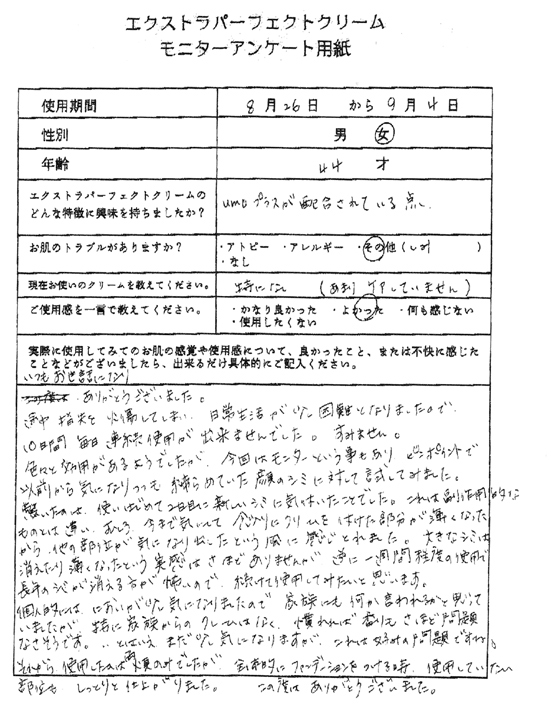 エクストラパーフェクトクリーム
モニターアンケート用紙
使用期間 8月26日 から9月4日
性別 男 女
年齢 44 才
エクストラパーフェクトクリームの
どんな特徴に興味を持ちましたか？ umoプラスが配合されている点。
お肌のトラブルがありますか？ ・アトピー ・アレルギー ・その他（しみ ）
・なし
現在お使いのクリームを教えてください。 特になし （あまりケアしていません）
ご使用感を一言で教えてください。 ・かなり良かった ・よかった ・何も感じない
・使用したくない
実際に使用してみてのお肌の感覚や使用感について、良かったこと、または不快に感じた
ことなどがございましたら、出来るだけ具体的にご記入ください。
いつもお世話になり
ありがとうございました。
途中 指先を火傷してしまい、日常生活が少し困難となりましたので、
10日間 毎日 連続使用が出来ませんでした。すみません。
色々と効用があるようでしたが、今回はモニターという事もあり、ピンポイントで
以前から気になりつつも 諦めていた 顔のシミに対して試してみました。
驚いたのは、使いはじめて2日目に新しいシミに気付いたことでした。これは副作用的な
ものとは違い、おそらく 今まで気にして 念入りにクリームを付けた部分が薄くなった
から、他の部位が気になり出したという風に感じとれました。大きなシミは
消えたり薄くなったという実感はさほどありませんが 逆に一週間程度の使用で
長年のシミが消える方が怖いので、続けて使用してみたいと思います。
個人的には においが少し気になりましたので 家族にも何か言われるかと思って
いましたが 特に家族からのクレームはなく、慣れれば香りもさほど問題
なさそうです。…とはいえ まだ少し気になりますが、これは好みの問題ですかね。
それから 使用したのは両頬のみでしたが 全体的にファンデーションをつける時、使用していない
部位も しっとりと仕上がりました。 この度は ありがとうございました。